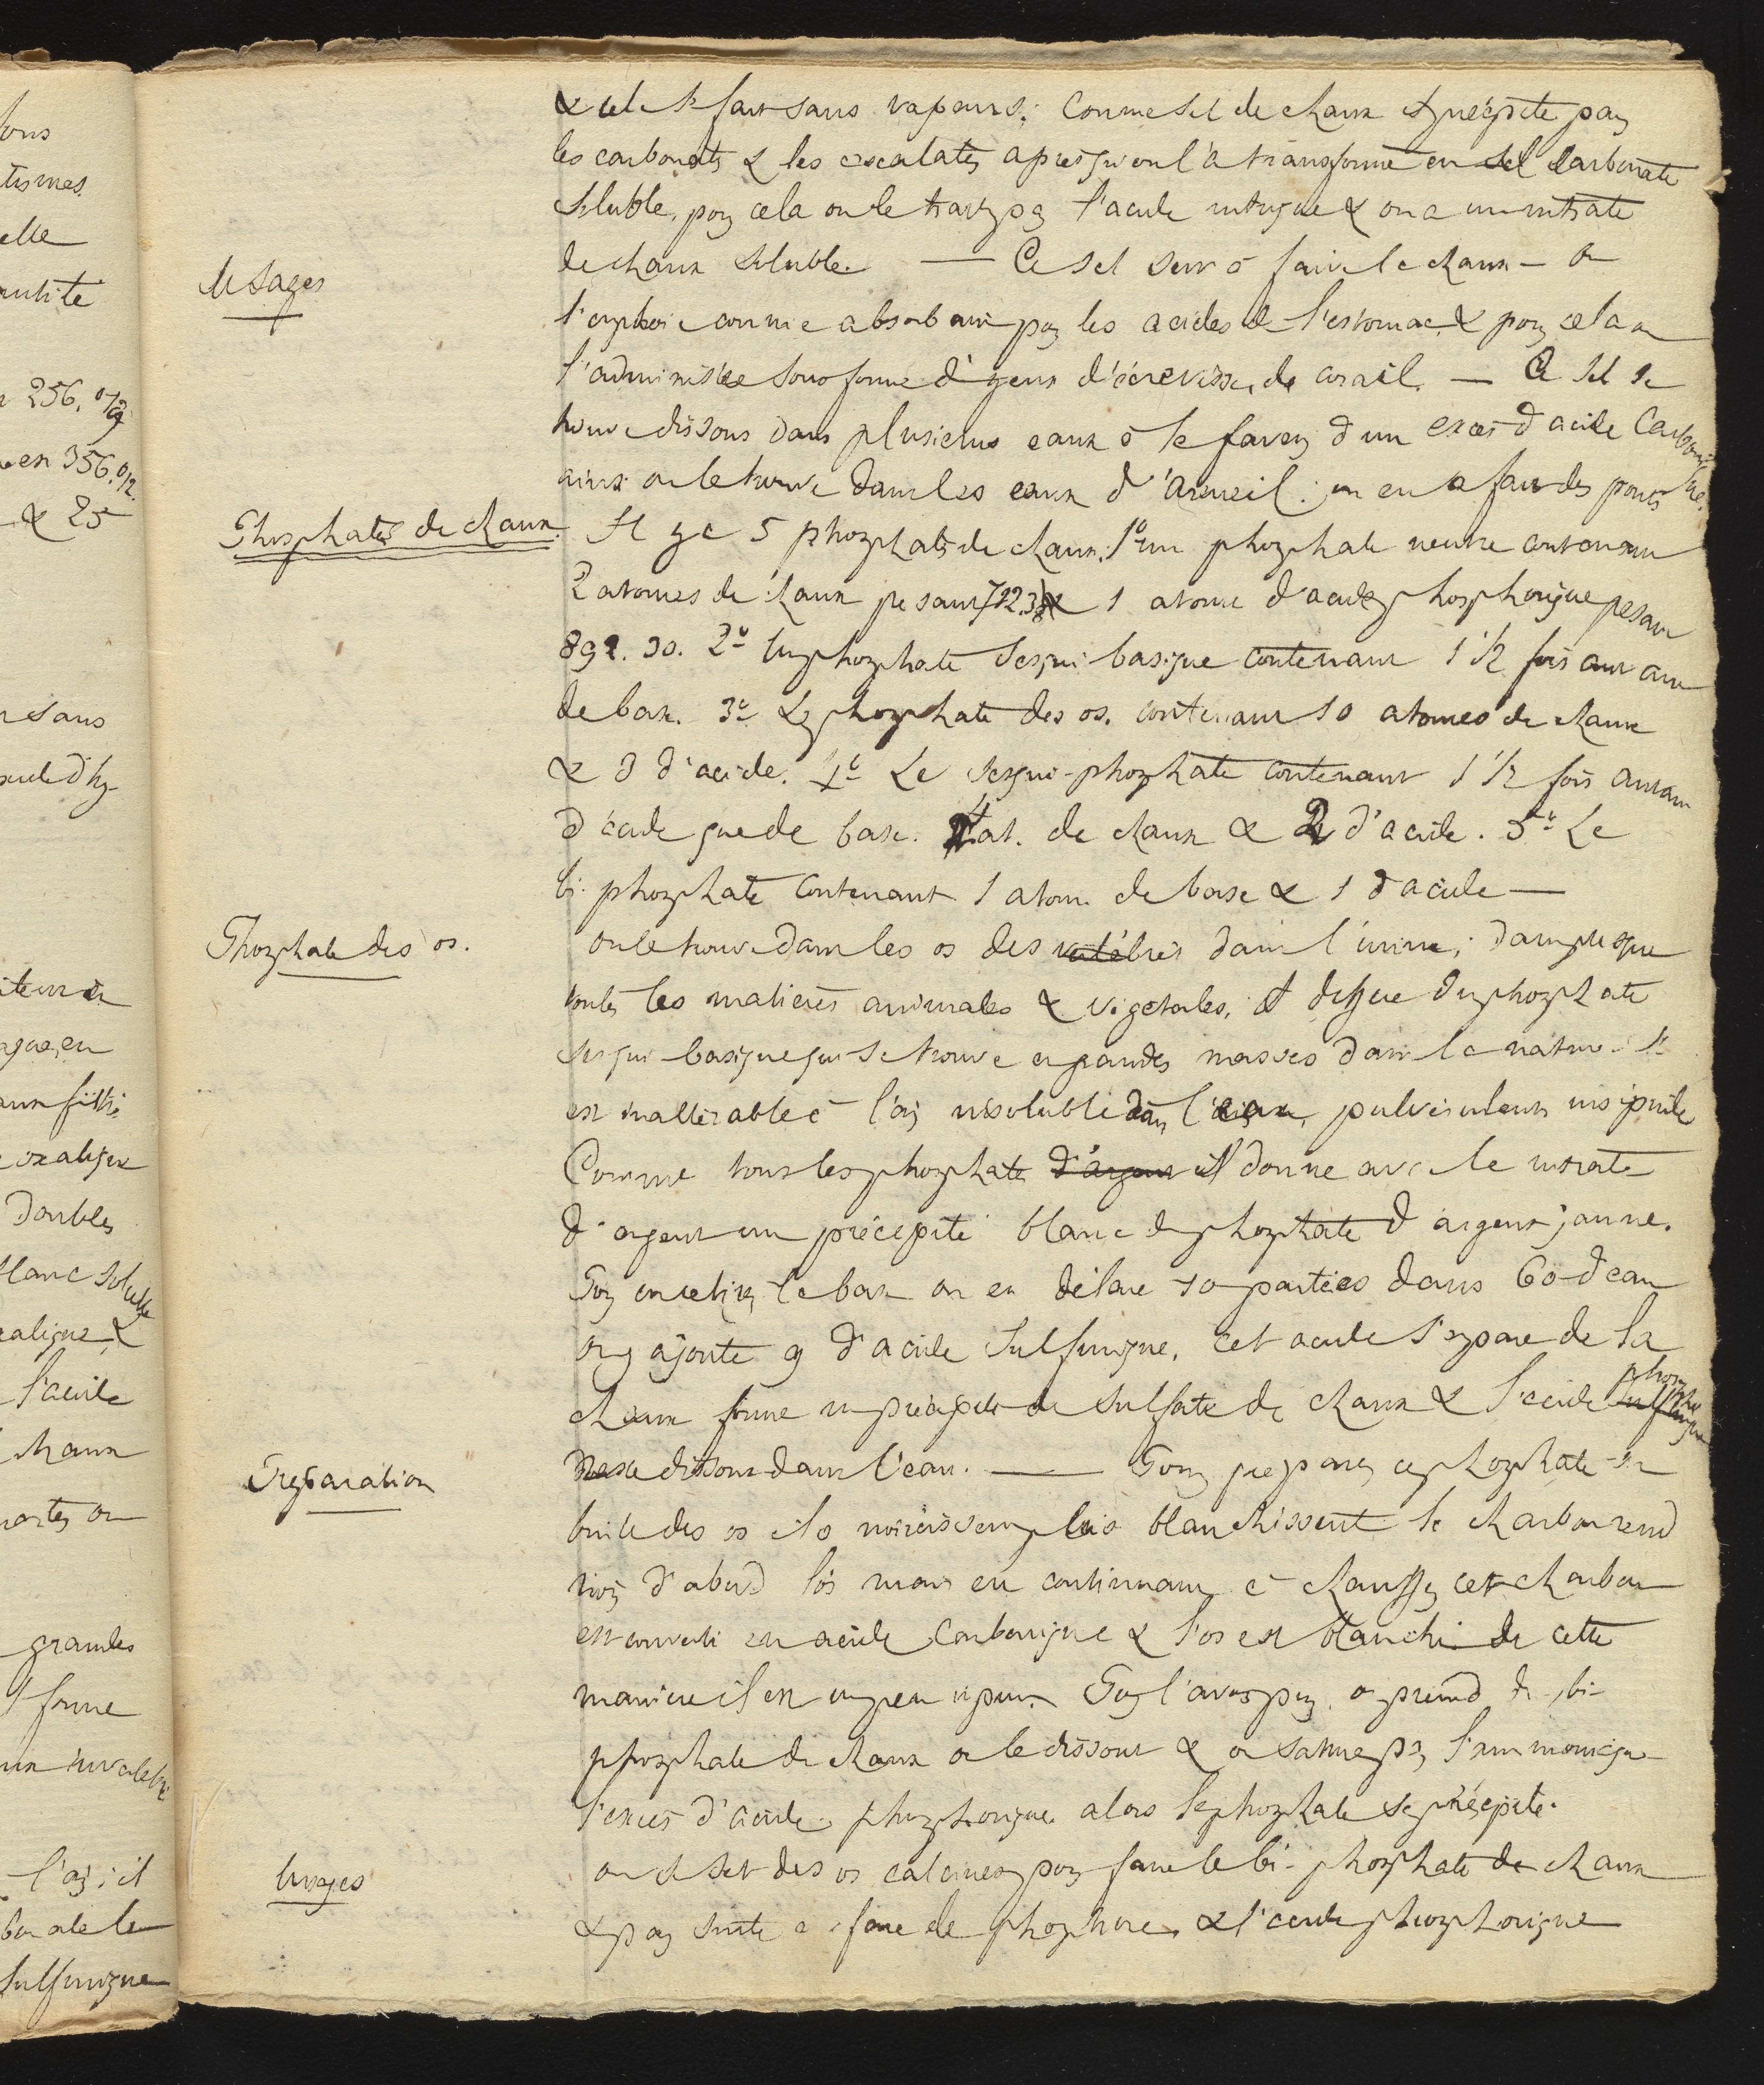 & cela se fait sans vapeurs; Comme sel de chaux est précipité par
les carbonates & les oxalates après qu'on l'a transformé en sel carbonate
soluble, pour cela on le traite par l'acide nitrique & on a un nitrate
Usages
de chaux soluble. — Ce sel sert à faire la chaux — on
l'emploie comme absorbant pour les acides de l'estomac & pour cela on
l'administre sous forme d'yeux d'écrevisses, de corail. — Ce sel se
trouve dissous dans plusieurs eaux à la faveur d'un excès d'acide Carbonique.
ainsi on le trouve dans les eaux d'Arcueil: on en a fait des ponts
Phosphates de chaux.
Il y a 5 phosphates de chaux. 1° un phosphate neutre contenant
2 atomes de chaux pesant 712.3 & 1 atome d'acide phosphorique pesant
892.30. 2° Un phosphate Sesqui basique contenant 1 1/2 fois autant
de base. 3° Le phosphate des os. contenant 10 atomes de chaux
& 3 d'acide. 4° Le sesqui-phosphate contenant 1 1/2 fois autant
d'acide que de base. 4 at. de chaux & d'acide. 5° Le
bi-phosphate contenant 1 atome de base & 1 d'acide —
Phosphate des os.
on le trouve dans les os des vertébrés dans l'urine, dans presque
toutes les matières animales & végétales, il diffère du phosphate
sesqui-basique qui se trouve en grandes masses dans la nature. Il
est inaltérable à l'air insoluble dans l'eau, pulvérulent insipide
Comme tous les phosphates d'argent il donne avec le nitrate
d'argent un précipité blanc de phosphate d'argent jaune.
Pour en retirer la base on en délaie 10 parties dans 60 d'eau
on y ajoute 9 d'acide Sulfurique, cet acide s'empare de la
chaux forme un précipité de sulfate de chaux & l'acide sulfurique phosphorique
Préparation
reste dissous dans l'eau. — Pour préparer ce phosphate on
brule des os ils noircissent puis blanchissent le charbon rend
noir d'abord l'os mais en continuant à chauffer cet charbon
est converti en acide Carbonique & l'os est blanchi de cette
manière il est un peu impur. Pour l'avoir pur on prend du bi-
phosphate de chaux on le dissout & on sature par l'ammoniaque
l'excès d'acide phosphorique alors le phosphate se précipite.
Usages
on se sert des os calcinés pour faire le bi-phosphate de chaux
& par suite à faire le phosphore & l'acide phosphorique